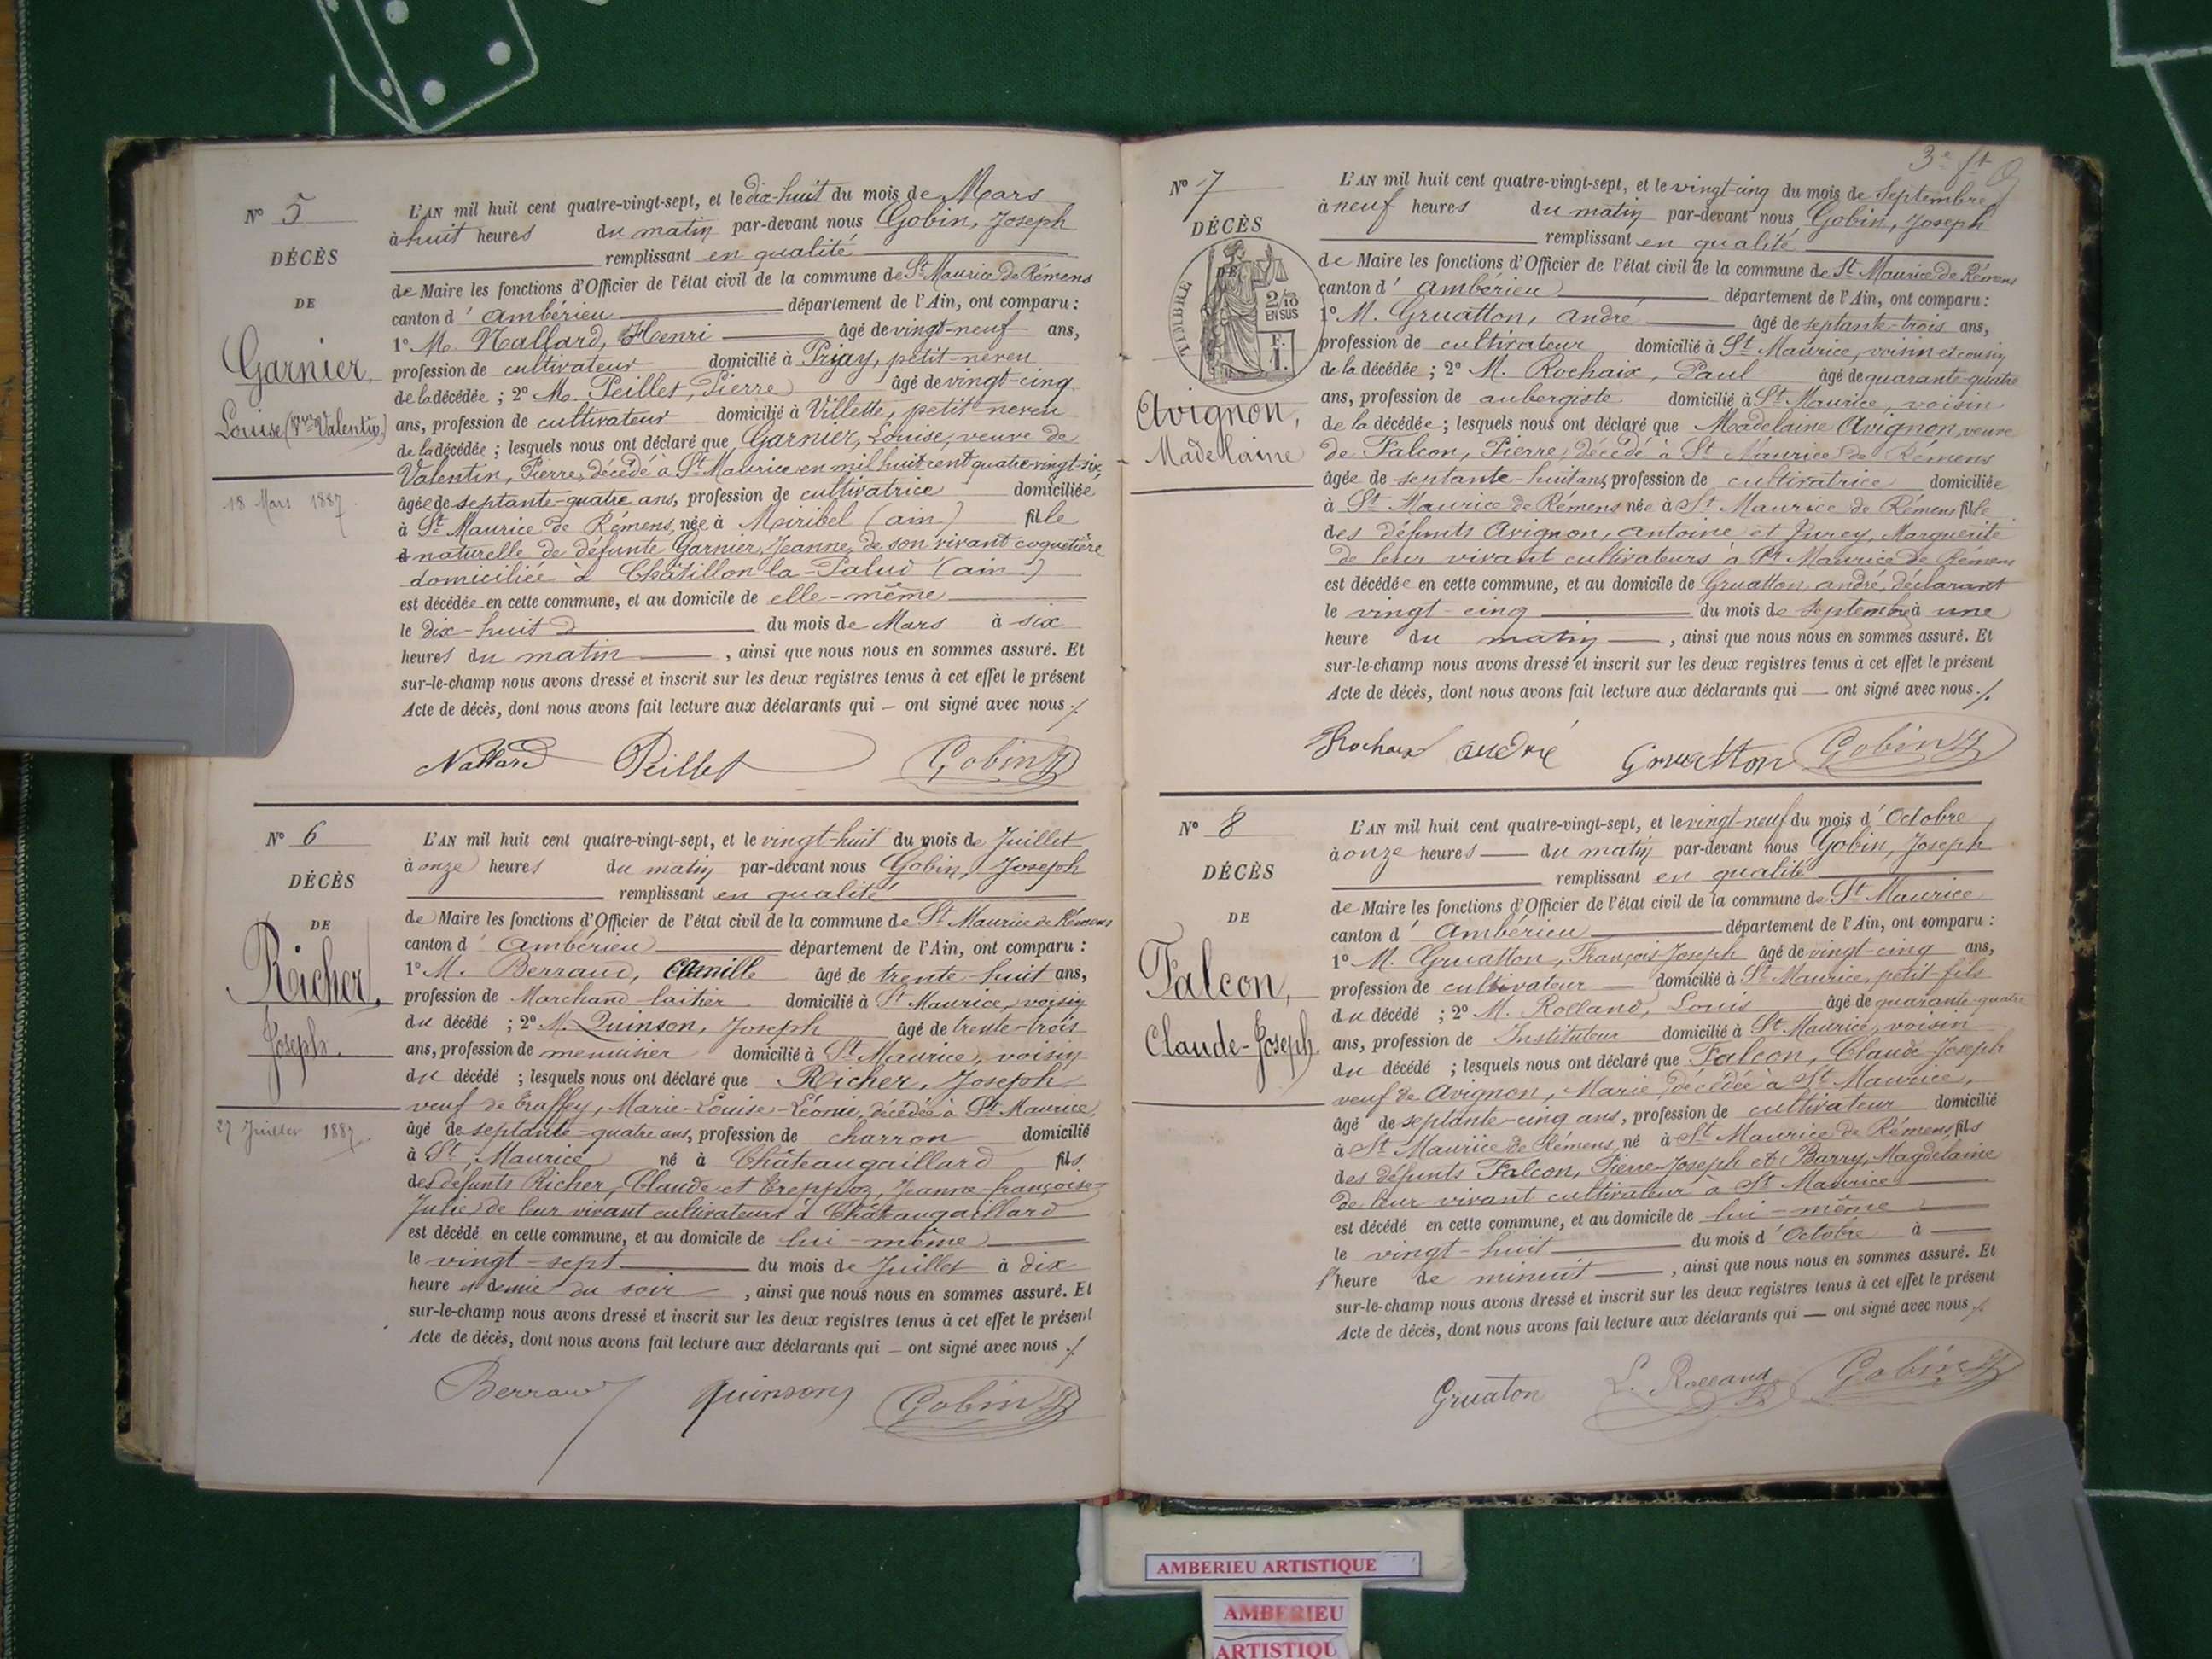 N° 5
DÉCÈS
DE
Garnier,
Louise (Vve Valentin)
18 Mars 1887.
L'AN mil huit cent quatre-vingt-sept, et le dix-huit du mois de Mars
à huit heures du matin par-devant nous Gobin, Joseph
remplissant en qualité
de Maire les fonctions d'Officier de l'état civil de la commune de St Maurice de Rémens
canton d'Ambérieu département de l'Ain, ont comparu :
1° M. Nallard, Henri âgé de vingt-neuf ans,
profession de cultivateur domicilié à Priay, petit-neveu
de la décédée ; 2° M. Peillet, Pierre âgé de vingt-cinq
ans, profession de cultivateur domicilié à Villette, petit neveu
de la décédée ; lesquels nous ont déclaré que Garnier, Louise, veuve de
Valentin, Pierre, décédé à St Maurice en mil huit cent quatre-vingt-six,
âgée de septante-quatre ans, profession de cultivatrice domiciliée
à St Maurice de Rémens, née à Miribel (ain) fille
naturelle de défunte Garnier, Jeanne, de son vivant coquetière
domiciliée à Châtillon-la-Palud (ain)
est décédée en cette commune, et au domicile de elle-même
le dix-huit du mois de Mars à six
heures du matin, ainsi que nous nous en sommes assuré. Et
sur-le-champ nous avons dressé et inscrit sur les deux registres tenus à cet effet le présent
Acte de décès, dont nous avons fait lecture aux déclarants qui — ont signé avec nous ./.
Nallard Peillet Gobin
N° 6
DÉCÈS
DE
Richer,
Joseph.
27 Juillet 1887
L'AN mil huit cent quatre-vingt-sept, et le vingt-huit du mois de Juillet
à onze heures du matin par-devant nous Gobin, Joseph
remplissant en qualité
de Maire les fonctions d'Officier de l'état civil de la commune de St Maurice de Rémens
canton d'Ambérieu département de l'Ain, ont comparu :
1° M. Berraud, Camille âgé de trente-huit ans,
profession de Marchand laitier domicilié à St Maurice, voisin
du décédé ; 2° M. Quinson, Joseph âgé de trente-trois
ans, profession de menuisier domicilié à St Maurice, voisin
du décédé ; lesquels nous ont déclaré que Richer, Joseph
veuf de Traffey, Marie-Louise-Léonie, décédée à St Maurice,
âgé de septante-quatre ans, profession de charron domicilié
à St Maurice né à Châteaugaillard fils
des défunts Richer, Claude et Treppoz, Jeanne-françoise-
Julie, de leur vivant cultivateurs à Châteaugaillard
est décédé en cette commune, et au domicile de lui-même
le vingt-sept du mois de Juillet à dix
heure et demie du soir, ainsi que nous nous en sommes assuré. Et
sur-le-champ nous avons dressé et inscrit sur les deux registres tenus à cet effet le présent
Acte de décès, dont nous avons fait lecture aux déclarants qui — ont signé avec nous ./
Berraud Quinson Gobin
3e ft
N° 7
DÉCÈS
DE
TIMBRE
2/10 EN SUS
F. 1.
Avignon,
Madelaine
L'AN mil huit cent quatre-vingt-sept, et le vingt-cinq du mois de Septembre
à neuf heures du matin par-devant nous Gobin, Joseph
remplissant en qualité
de Maire les fonctions d'Officier de l'état civil de la commune de St Maurice de Rémens
canton d'Ambérieu département de l'Ain, ont comparu :
1° M. Gruatton, André âgé de septante-trois ans,
profession de cultivateur domicilié à St Maurice, voisin et cousin
de la décédée ; 2° M. Rochaix, Paul âgé de quarante-quatre
ans, profession de aubergiste domicilié à St Maurice, voisin
de la décédée ; lesquels nous ont déclaré que Madelaine Avignon, veuve
de Falcon, Pierre, décédé à St Maurice de Rémens
âgée de septante-huit ans, profession de cultivatrice domiciliée
à St Maurice de Rémens née à St Maurice de Rémens fille
des défunts Avignon, Antoine et Jurey, Marguerite
de leur vivant cultivateurs à St Maurice de Rémens
est décédée en cette commune, et au domicile de Gruatton, andré, déclarant
le vingt-cinq du mois de septembre à une
heure du matin, ainsi que nous nous en sommes assuré. Et
sur-le-champ nous avons dressé et inscrit sur les deux registres tenus à cet effet le présent
Acte de décès, dont nous avons fait lecture aux déclarants qui — ont signé avec nous ./.
Rochaix andré Gruatton Gobin
N° 8
DÉCÈS
DE
Falcon,
Claude-Joseph.
L'AN mil huit cent quatre-vingt-sept, et le vingt-neuf du mois d'Octobre
à onze heures du matin par-devant nous Gobin, Joseph
remplissant en qualité
de Maire les fonctions d'Officier de l'état civil de la commune de St Maurice
canton d'Ambérieu département de l'Ain, ont comparu :
1° M. Gruatton, François Joseph âgé de vingt-cinq ans,
profession de cultivateur domicilié à St Maurice, petit-fils
du décédé ; 2° M. Rolland, Louis âgé de quarante-quatre
ans, profession de Instituteur domicilié à St Maurice, voisin
du décédé ; lesquels nous ont déclaré que Falcon, Claude-Joseph
veuf de Avignon, Marie, décédée à St Maurice,
âgé de septante-cinq ans, profession de cultivateur domicilié
à St Maurice de Rémens, né à St Maurice de Rémens fils
des défunts Falcon, Pierre-Joseph et Barry, Magdelaine
de leur vivant cultivateur à St Maurice
est décédé en cette commune, et au domicile de lui-même
le vingt-huit du mois d'Octobre à
l'heure de minuit, ainsi que nous nous en sommes assuré. Et
sur-le-champ nous avons dressé et inscrit sur les deux registres tenus à cet effet le présent
Acte de décès, dont nous avons fait lecture aux déclarants qui — ont signé avec nous ./.
Gruaton L. Rolland Gobin
AMBERIEU ARTISTIQUE
AMBERIEU
ARTISTIQU